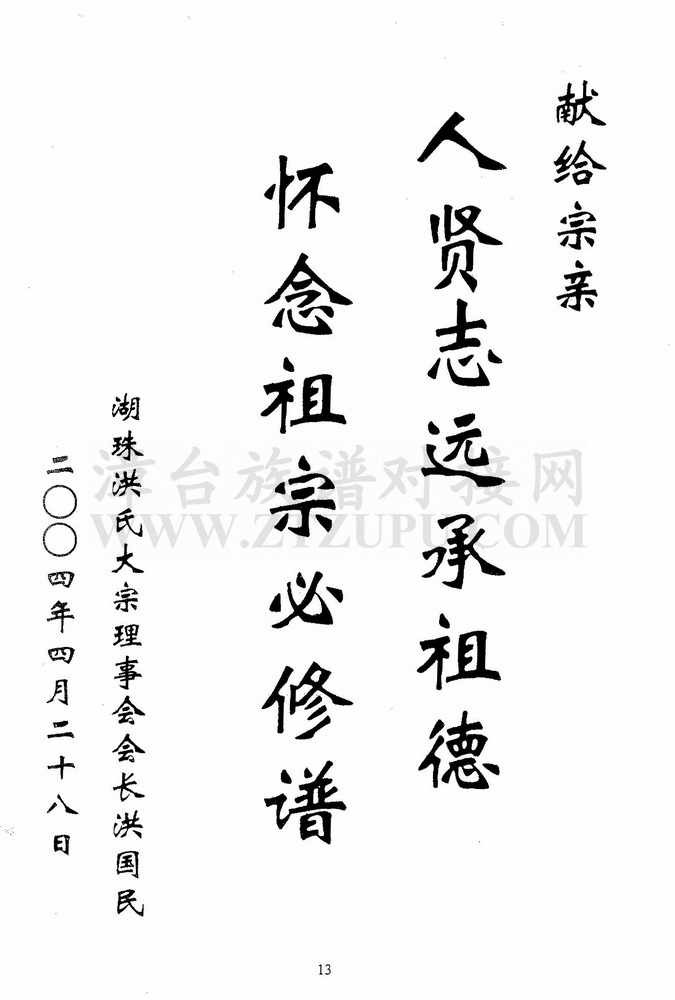 献给宗亲
人贤志远承祖德
怀念祖宗必修谱
湖珠洪氏大宗理事会会长洪国民
二〇〇四年四月二十八日
漳台族谱对接网
WWW.ZTZUPU.COM
13